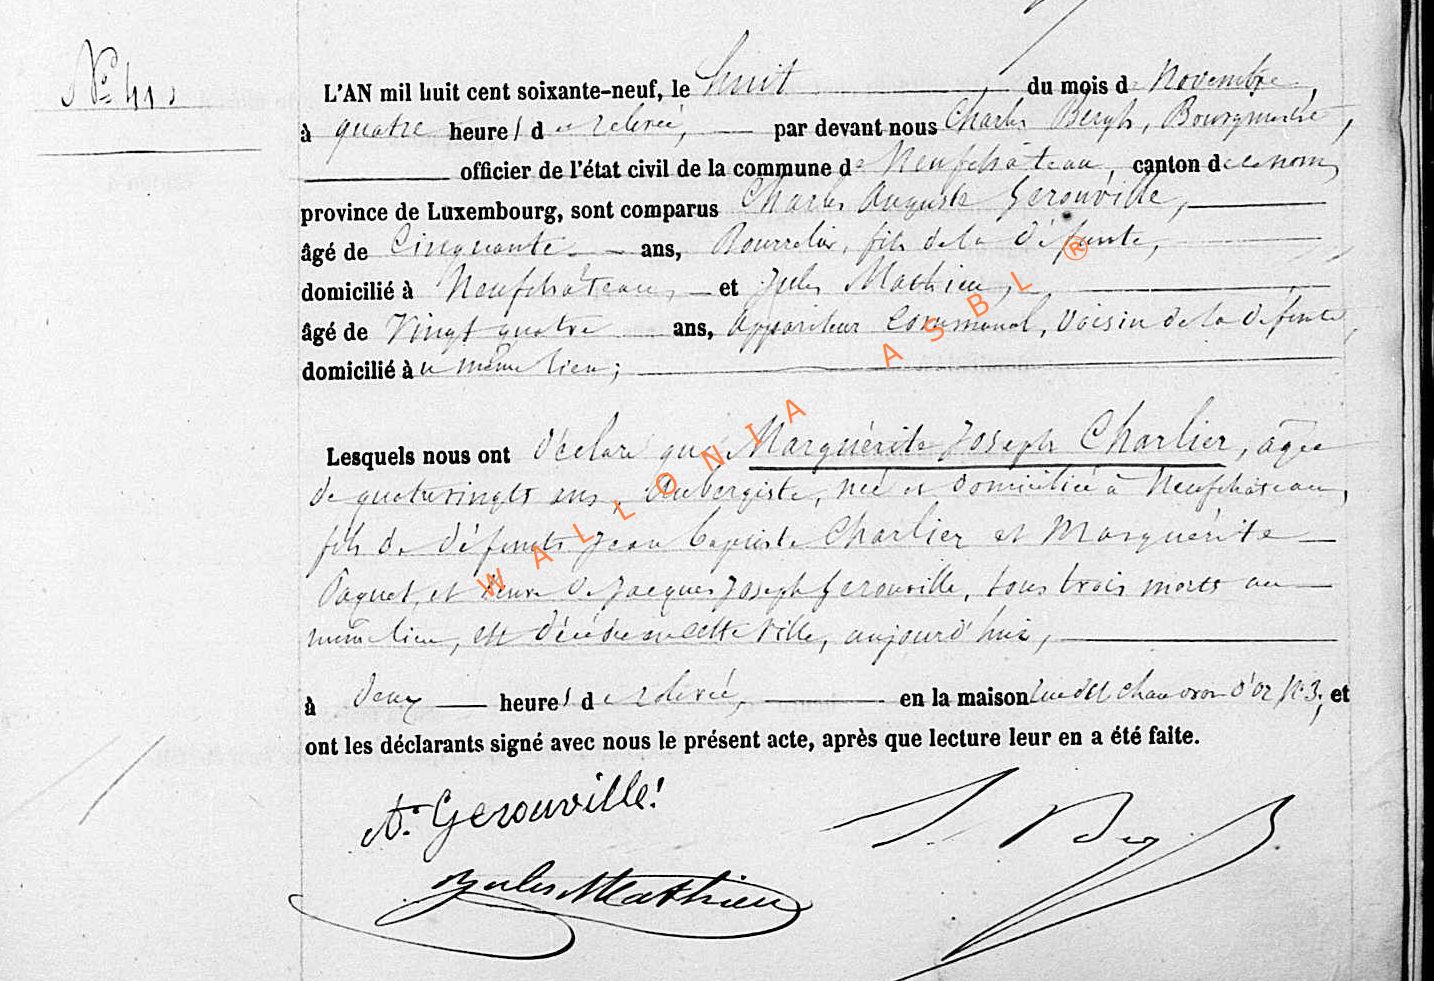 N° 41.
L'AN mil huit cent soixante-neuf, le huit du mois de Novembre,
à quatre heures de relevée, par devant nous Charles Bergh, Bourgmestre,
officier de l'état civil de la commune de Neufchâteau, canton de ce nom,
province de Luxembourg, sont comparus Charles Auguste Gerouville,
âgé de Cinquante ans, Bourrelier, fils de la défunte,
domicilié à Neufchâteau, et Jules Mathieu,
âgé de Vingt quatre ans, appariteur communal, voisin de la défunte,
domicilié au même lieu;
Lesquels nous ont déclaré que Marguérite Joseph Charlier, âgée
de quatrevingts ans, Aubergiste, née et domiciliée à Neufchâteau,
fille de défunts Jean baptiste Charlier et Marguérite
Paquet, et veuve de Jacques Joseph Gerouville, tous trois morts au
même lieu, est décédée en cette ville, aujourd'hui,
à deux heures de relevée, en la maison rue du d'or N° 3, et
ont les déclarants signé avec nous le présent acte, après que lecture leur en a été faite.
A. Gerouville
Jules Mathieu
WALLONIA ASBL ®